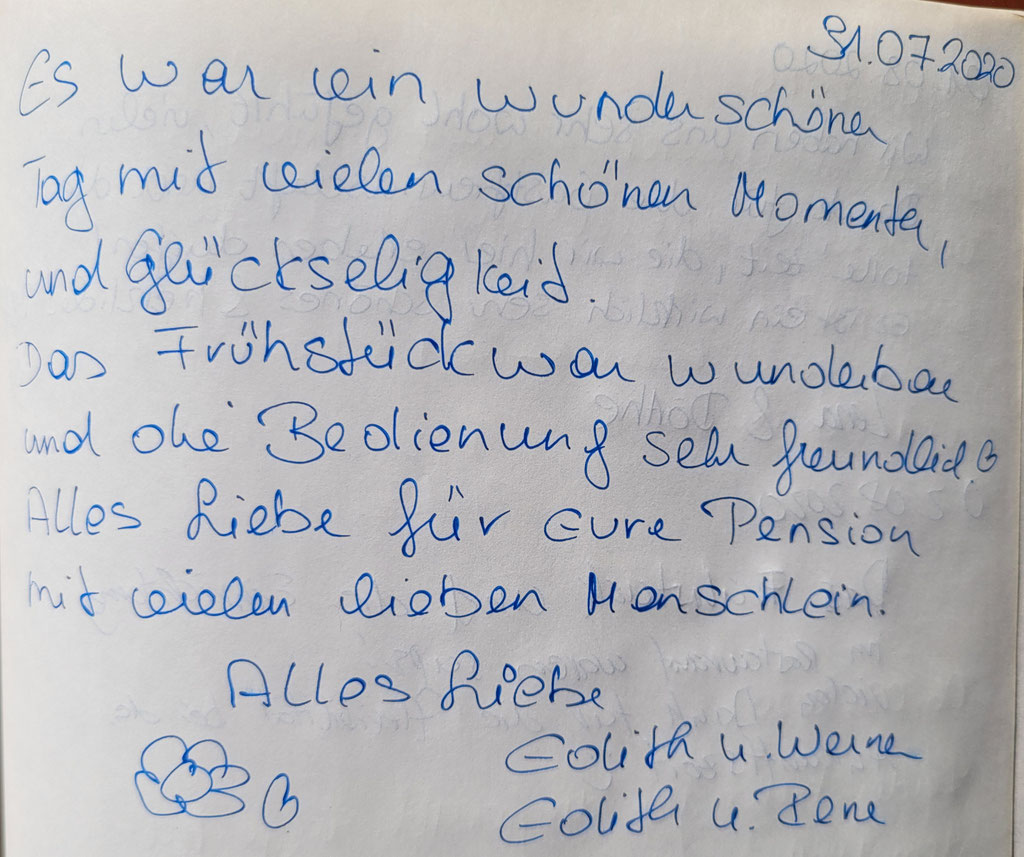 31.07.2020
Es war ein wunderschöner
Tag mit vielen schönen Momenten,
und Glückseligkeit.
Das Frühstück war wunderbar
und die Bedienung sehr freundlich.
Alles Liebe für Eure Pension
mit vielen lieben Menschlein.
Alles Liebe
Edith u. Werner
Edith u. Rene